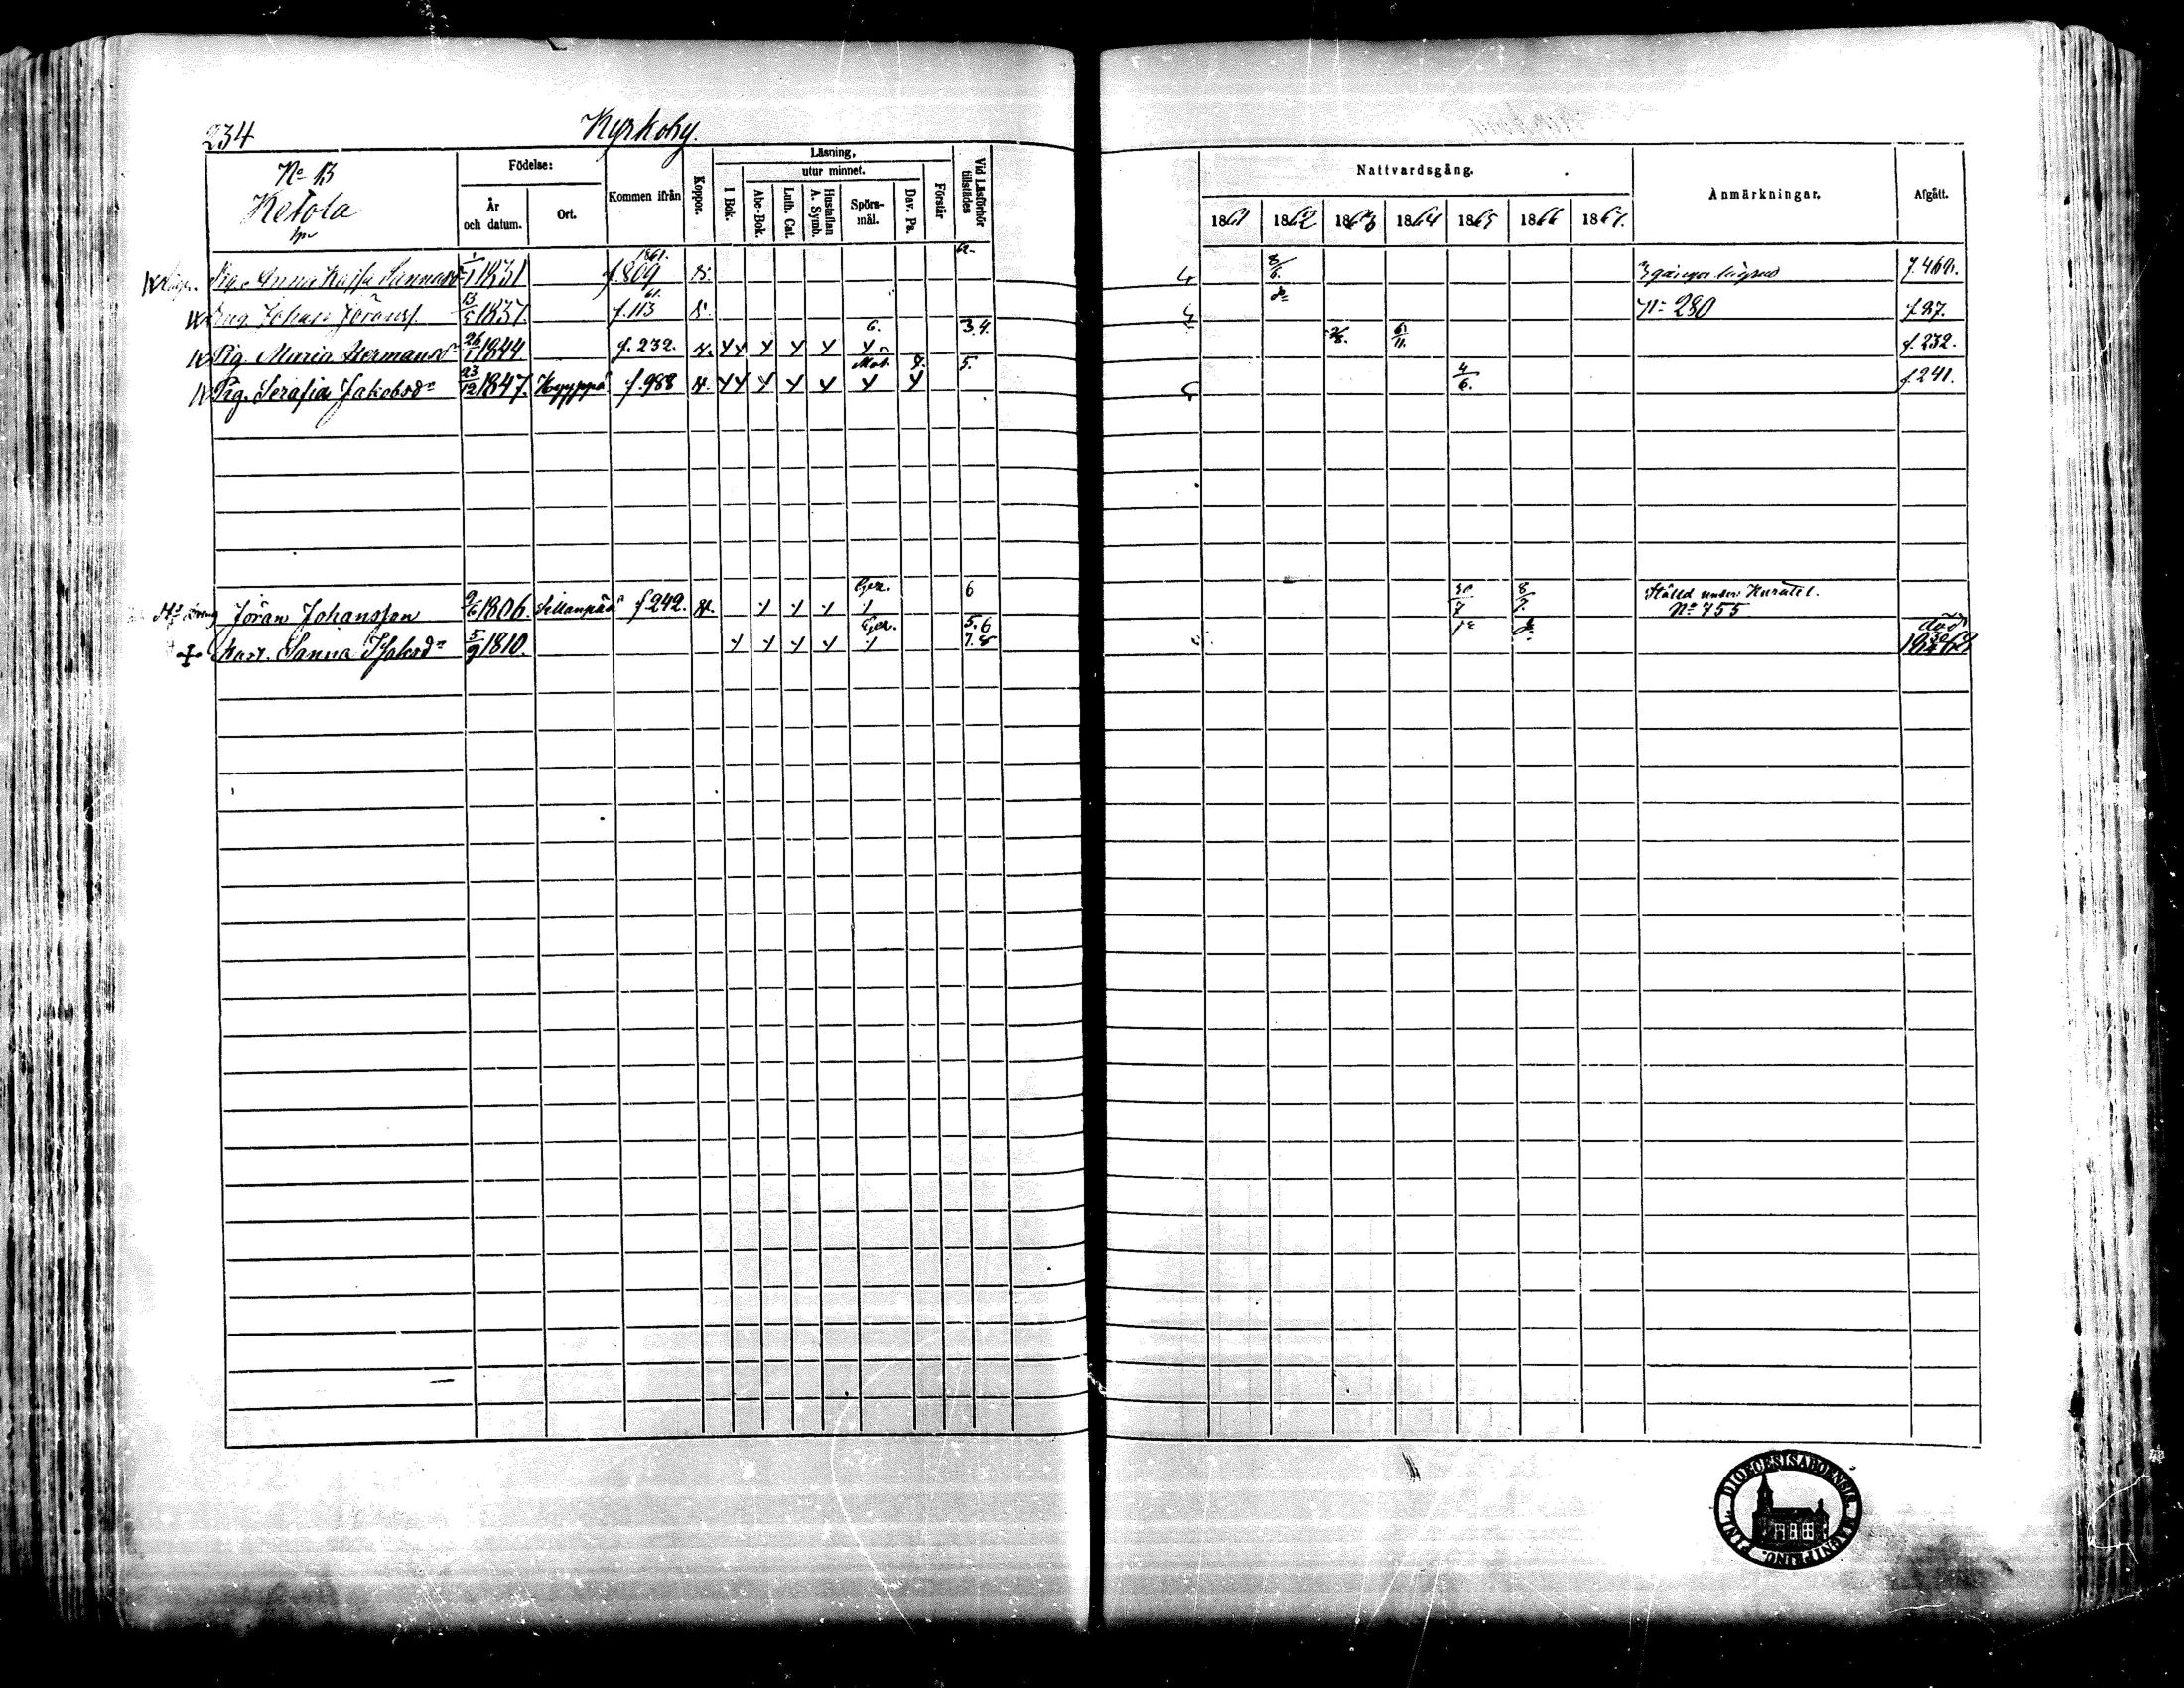 234 Kyrkoby.
No 13
Ketola
Födelse:
År och datum.
Ort.
Kommen ifrån
Koppor.
Läsning,
utur minnet.
I Bok.
Abc-Bok.
Luth. Cat.
Hustaflan A. Symb.
Spörs-mål.
Dav. Ps.
Förstår
Vid Läsförhör tillstädes
Nattvardsgång.
1861 1862 1863 1864 1865 1866 1867.
Anmärkningar.
Afgått.
Pig. Anna Kajsa 1/1 1831 1861. f. 809 2. 8/6. 3 gånger f. 462.
Johan Jöranss. 13/5 1837. 61. f. 113 No 280 f. 27.
Pig. Maria Hermansdr 26/1 1844 f. 232. 6. 3.4. 6/11. f. 232.
Pig. Serafia Jakobsdr 23/12 1847. f. 988 5. 4/6. f. 241.
Jöran Johansson 9/6 1806. Sillanpää f 242. 6 8/7. Ställd under Kuratel. No 755
Sanna 5/9 1810. 5.6 7.8 död
DIOECESIS ABOENSIS MAGNI PRINC. FINL.